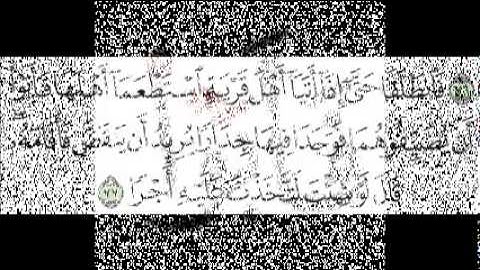 فَٱنطَلَقَا حَتَّىٰٓ إِذَآ أَتَيَآ أَهْلَ قَرْيَةٍ ٱسْتَطْعَمَآ أَهْلَهَا فَأَبَوْا۟
أَن يُضَيِّفُوهُمَا فَوَجَدَا فِيهَا جِدَارًا يُرِيدُ أَن يَنقَضَّ فَأَقَامَهُۥ
قَالَ لَوْ شِئْتَ لَتَّخَذْتَ عَلَيْهِ أَجْرًا ٧٧